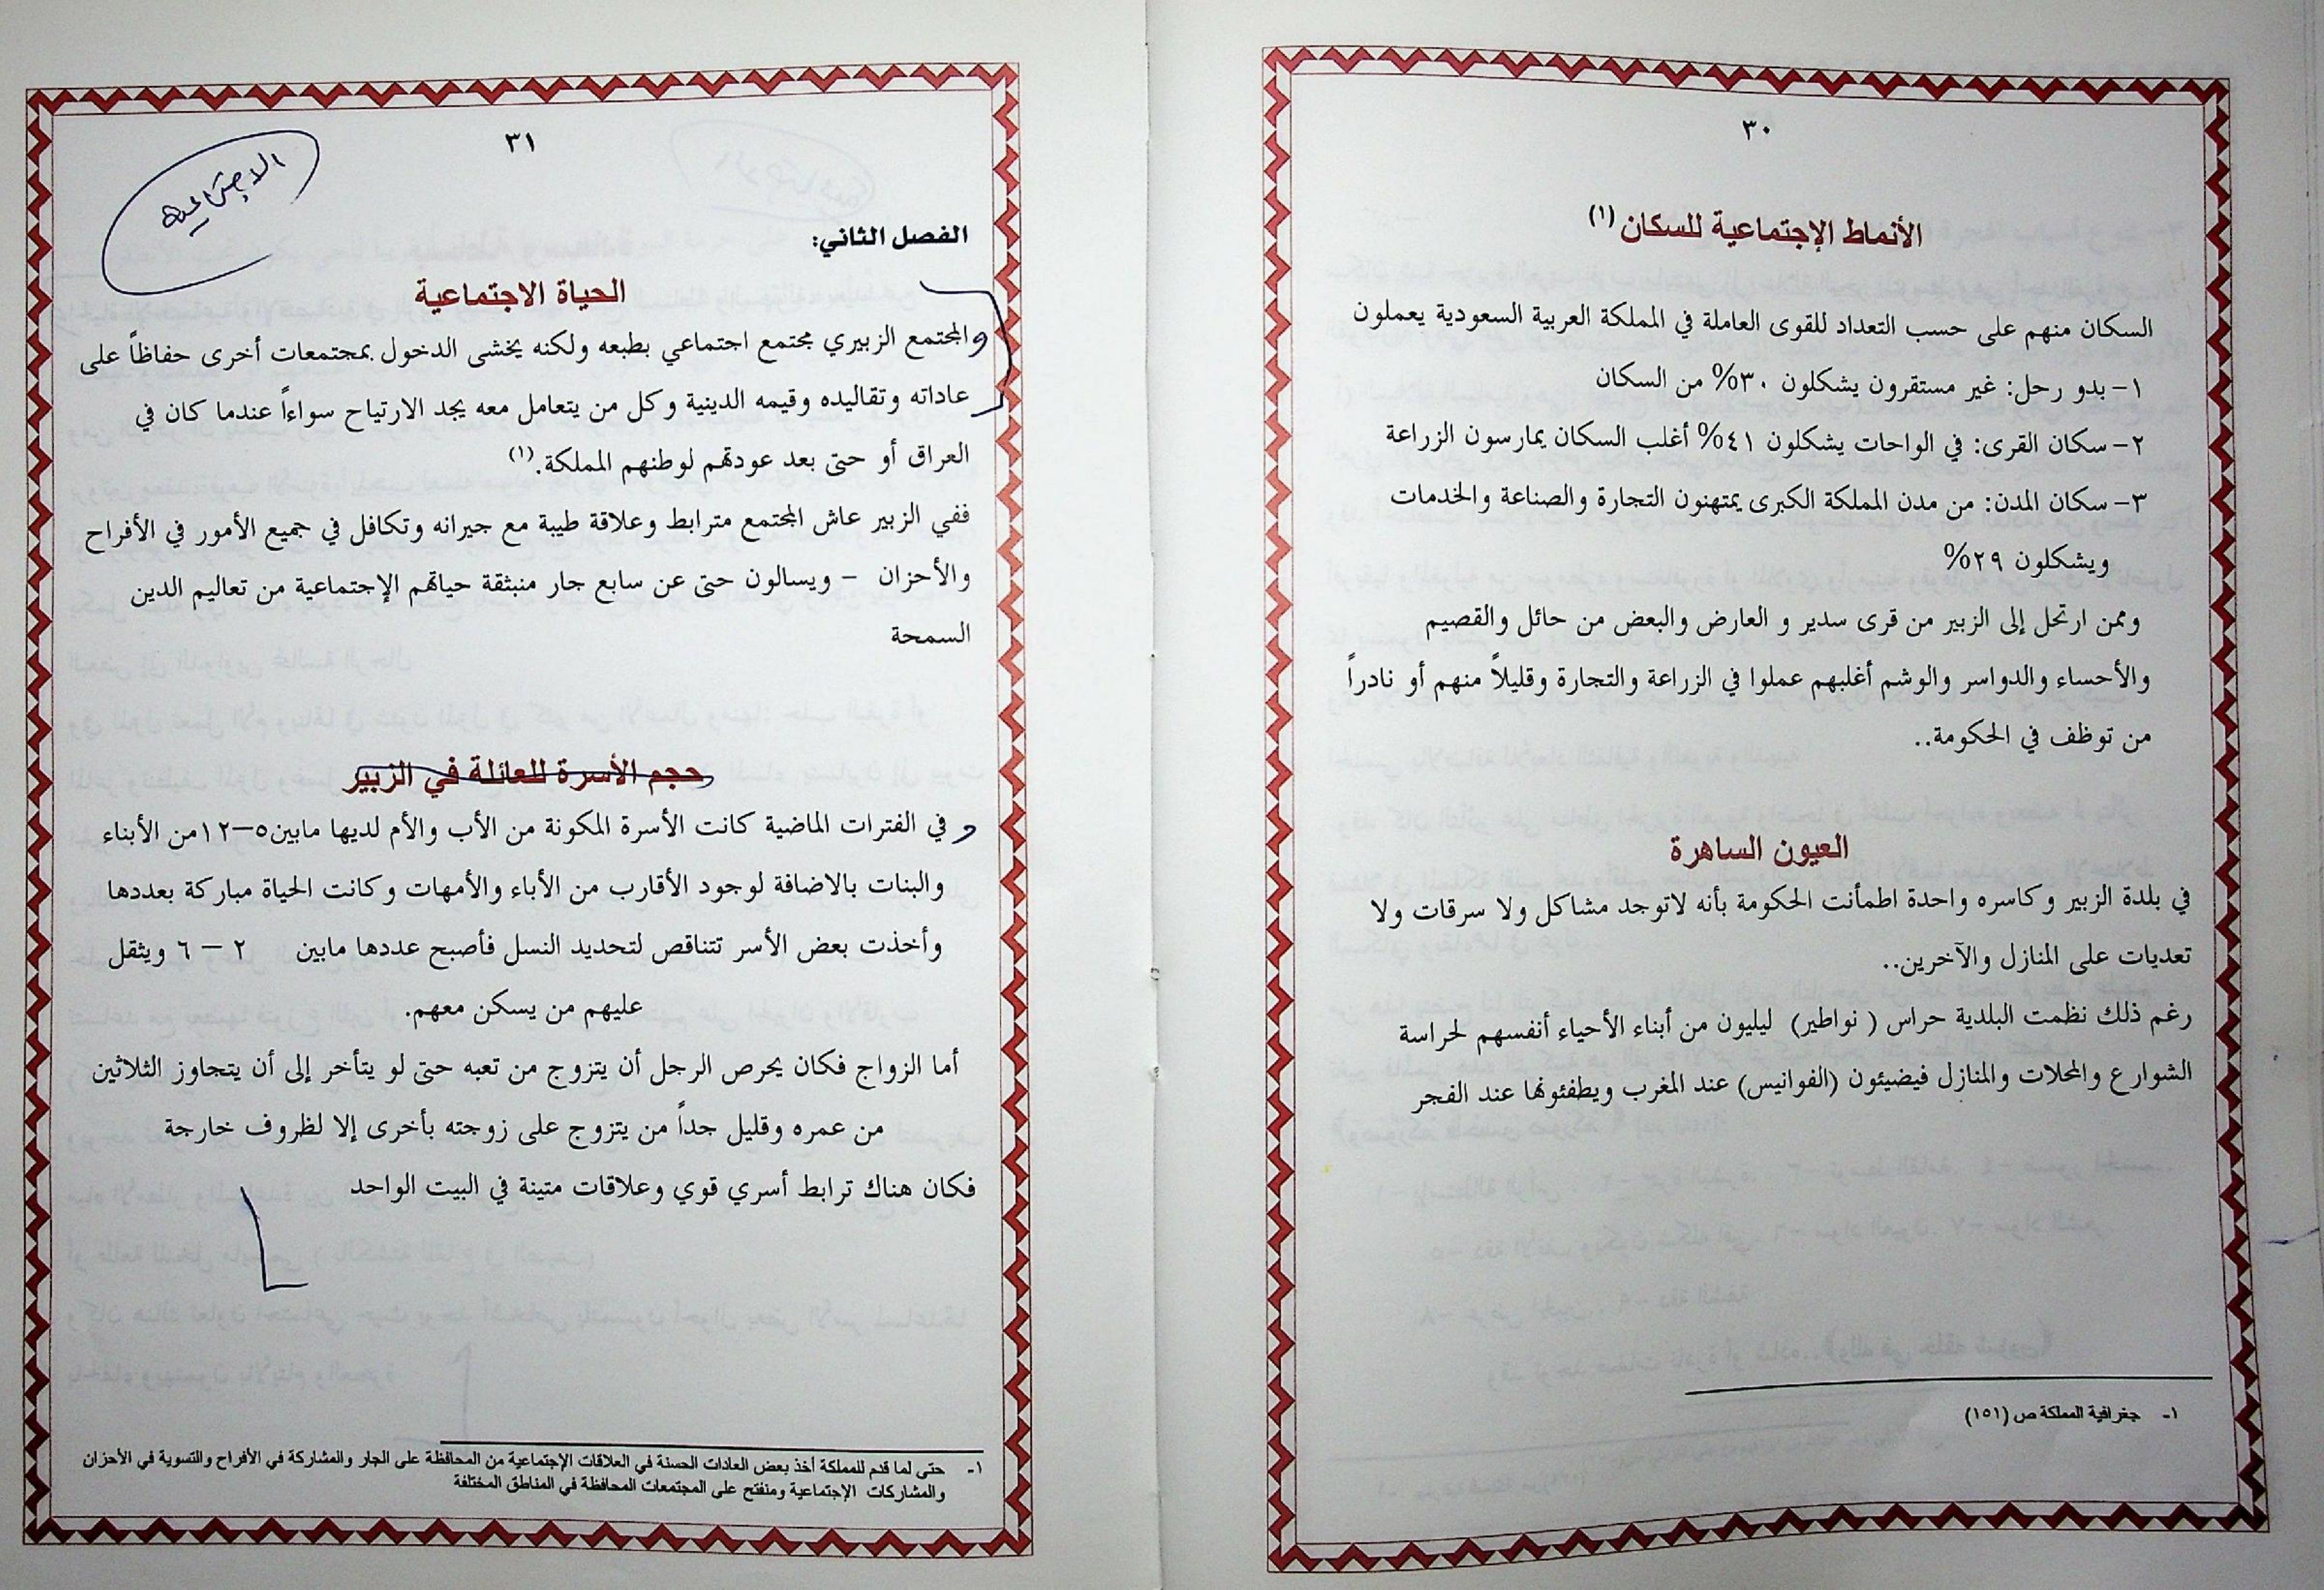 ٣٠
الأنماط الإجتماعية للسكان (١)
السكان منهم على حسب التعداد للقوى العاملة في المملكة العربية السعودية يعملون
١- بدو رحل: غير مستقرون يشكلون ٣٠% من السكان
٢- سكان القرى: في الواحات يشكلون ٤١% أغلب السكان يمارسون الزراعة
٣- سكان المدن: من مدن المملكة الكبرى يمتهنون التجارة والصناعة والخدمات
ويشكلون ٢٩%
وممن ارتحل إلى الزبير من قرى سدير و العارض والبعض من حائل والقصيم
والأحساء والدواسر والوشم أغلبهم عملوا في الزراعة والتجارة وقليلاً منهم أو نادراً
من توظف في الحكومة..
العيون الساهرة
في بلدة الزبير وكاسره واحدة اطمأنت الحكومة بأنه لاتوجد مشاكل ولا سرقات ولا
تعديات على المنازل والآخرين..
رغم ذلك نظمت البلدية حراس ( نواطير) ليليون من أبناء الأحياء أنفسهم لحراسة
الشوارع والمحلات والمنازل فيضيئون (الفوانيس) عند المغرب ويطفئونها عند الفجر
١- جغرافية المملكة ص (١٥١)
٣١
الاجتماعية
الفصل الثاني:
الحياة الاجتماعية
والمجتمع الزبيري مجتمع اجتماعي بطبعه ولكنه يخشى الدخول بمجتمعات أخرى حفاظاً على
عاداته وتقاليده وقيمه الدينية وكل من يتعامل معه يجد الارتياح سواءاً عندما كان في
العراق أو حتى بعد عودتهم لوطنهم المملكة.(١)
ففي الزبير عاش المجتمع مترابط وعلاقة طيبة مع جيرانه وتكافل في جميع الأمور في الأفراح
والأحزان – ويسالون حتى عن سابع جار منبثقة حياتهم الإجتماعية من تعاليم الدين
السمحة
حجم الأسرة للعائلة في الزبير
و في الفترات الماضية كانت الأسرة المكونة من الأب والأم لديها مابين٥–١٢من الأبناء
والبنات بالاضافة لوجود الأقارب من الأباء والأمهات وكانت الحياة مباركة بعددها
وأخذت بعض الأسر تتناقص لتحديد النسل فأصبح عددها مابين ٢ – ٦ ويثقل
عليهم من يسكن معهم.
أما الزواج فكان يحرص الرجل أن يتزوج من تعبه حتى لو يتأخر إلى أن يتجاوز الثلاثين
من عمره وقليل جداً من يتزوج على زوجته بأخرى إلا لظروف خارجة
فكان هناك ترابط أسري قوي وعلاقات متينة في البيت الواحد
١- حتى لما قدم للمملكة أخذ بعض العادات الحسنة في العلاقات الإجتماعية من المحافظة على الجار والمشاركة في الأفراح والتسوية في الأحزان
والمشاركات الإجتماعية ومنفتح على المجتمعات المحافظة في المناطق المختلفة